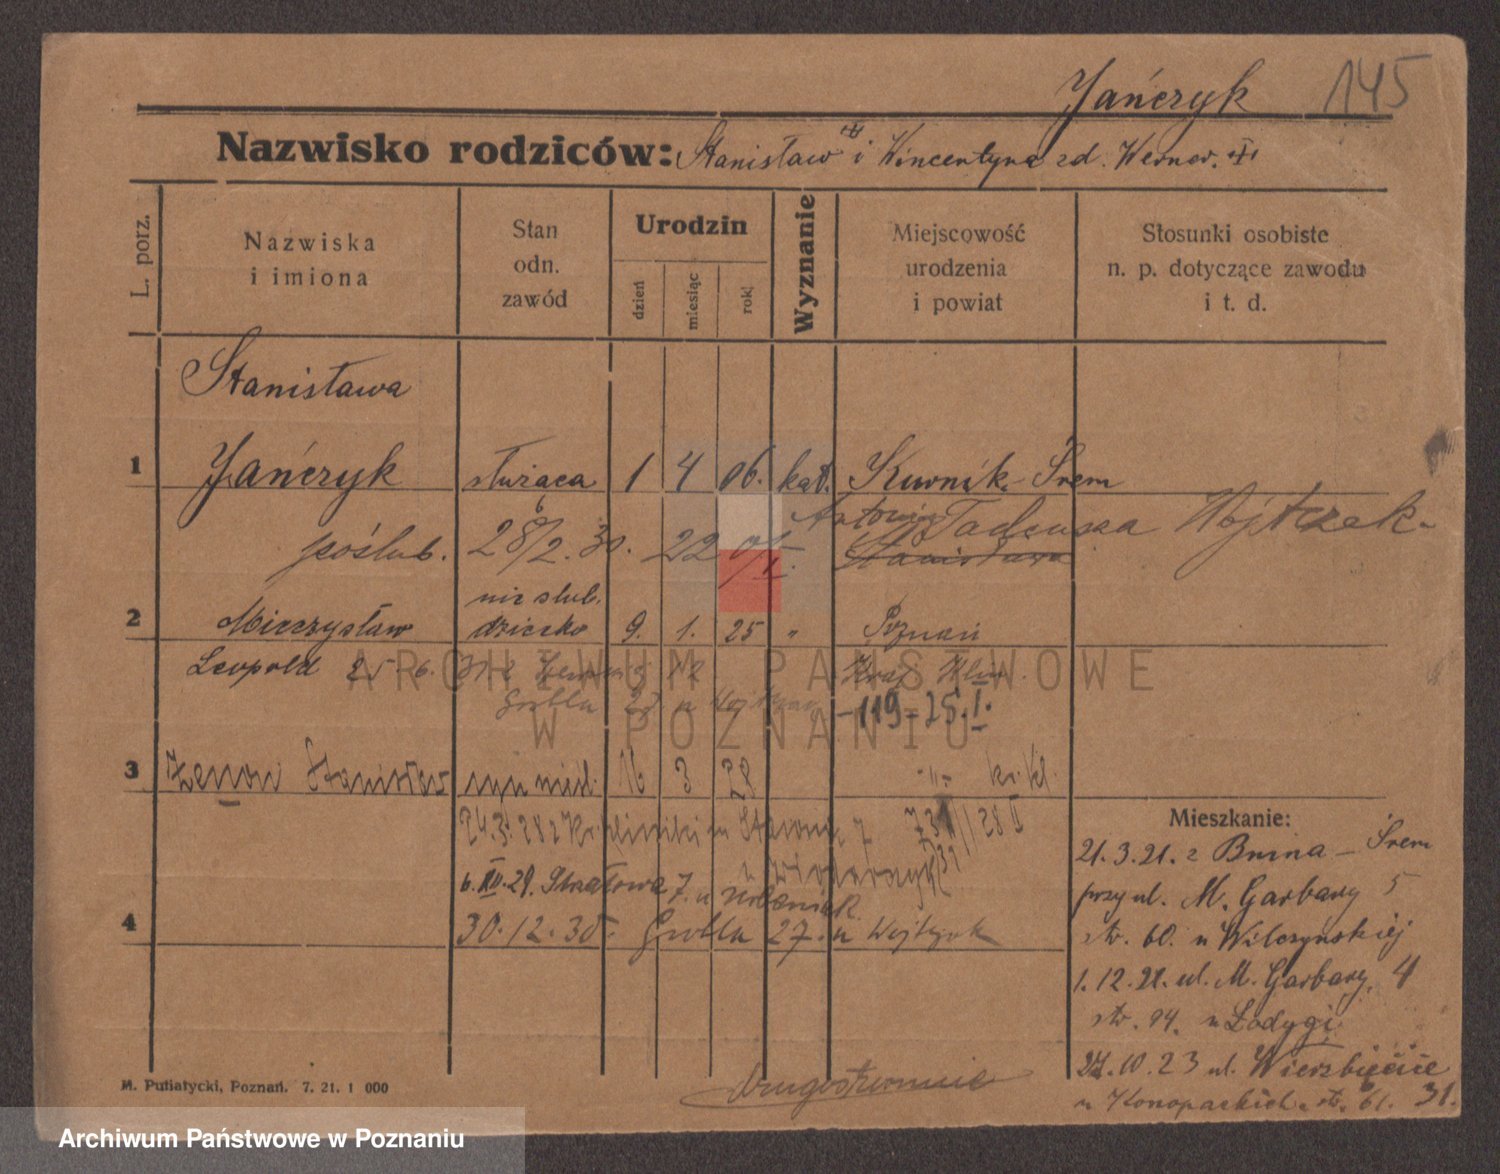 Jańczyk 145
Nazwisko rodziców: Stanisław i Wincentyna zd. Werner.
L. porz.
Nazwiska
i imiona
Stan
odn.
zawód
Urodzin
dzień
miesiąc
rok
Wyznanie
Miejscowość
urodzenia
i powiat
Stosunki osobiste
n. p. dotyczące zawodu
i t. d.
Stanisława
1 Jańczyk służąca 1 4 06. kat. Kurnik - Śrem
poślub. 28/2. 30. 22 Tadeusza Wojtczak
Stanisława
nie slub.
2 Mieczysław dziecko 9. 1. 25 " Poznań
Leopold 25 6.
Grobla 27 u
-119-25.I.
3 Zenon Stanisław syn 16 3 28 -"- kr. kl.
24.3.28 z Kr. kliniki
6.XII.29. 7. u
4 30.12.30. Grobla 27. u Wojtczak
Mieszkanie:
21.3.21. z Bnina - Śrem
przy ul. M. Garbary 5
str. 60. u Wilczyńskiej
1.12.21. ul. M. Garbary 4
str. 94. u Łodygi
27.10.23 ul. Wierzbięcice
u str. 61. 31.
Drugostronnie
M. Putiatycki, Poznań. 7. 21. 1 000
ARCHIWUM PAŃSTWOWE
W POZNANIU
Archiwum Państwowe w Poznaniu